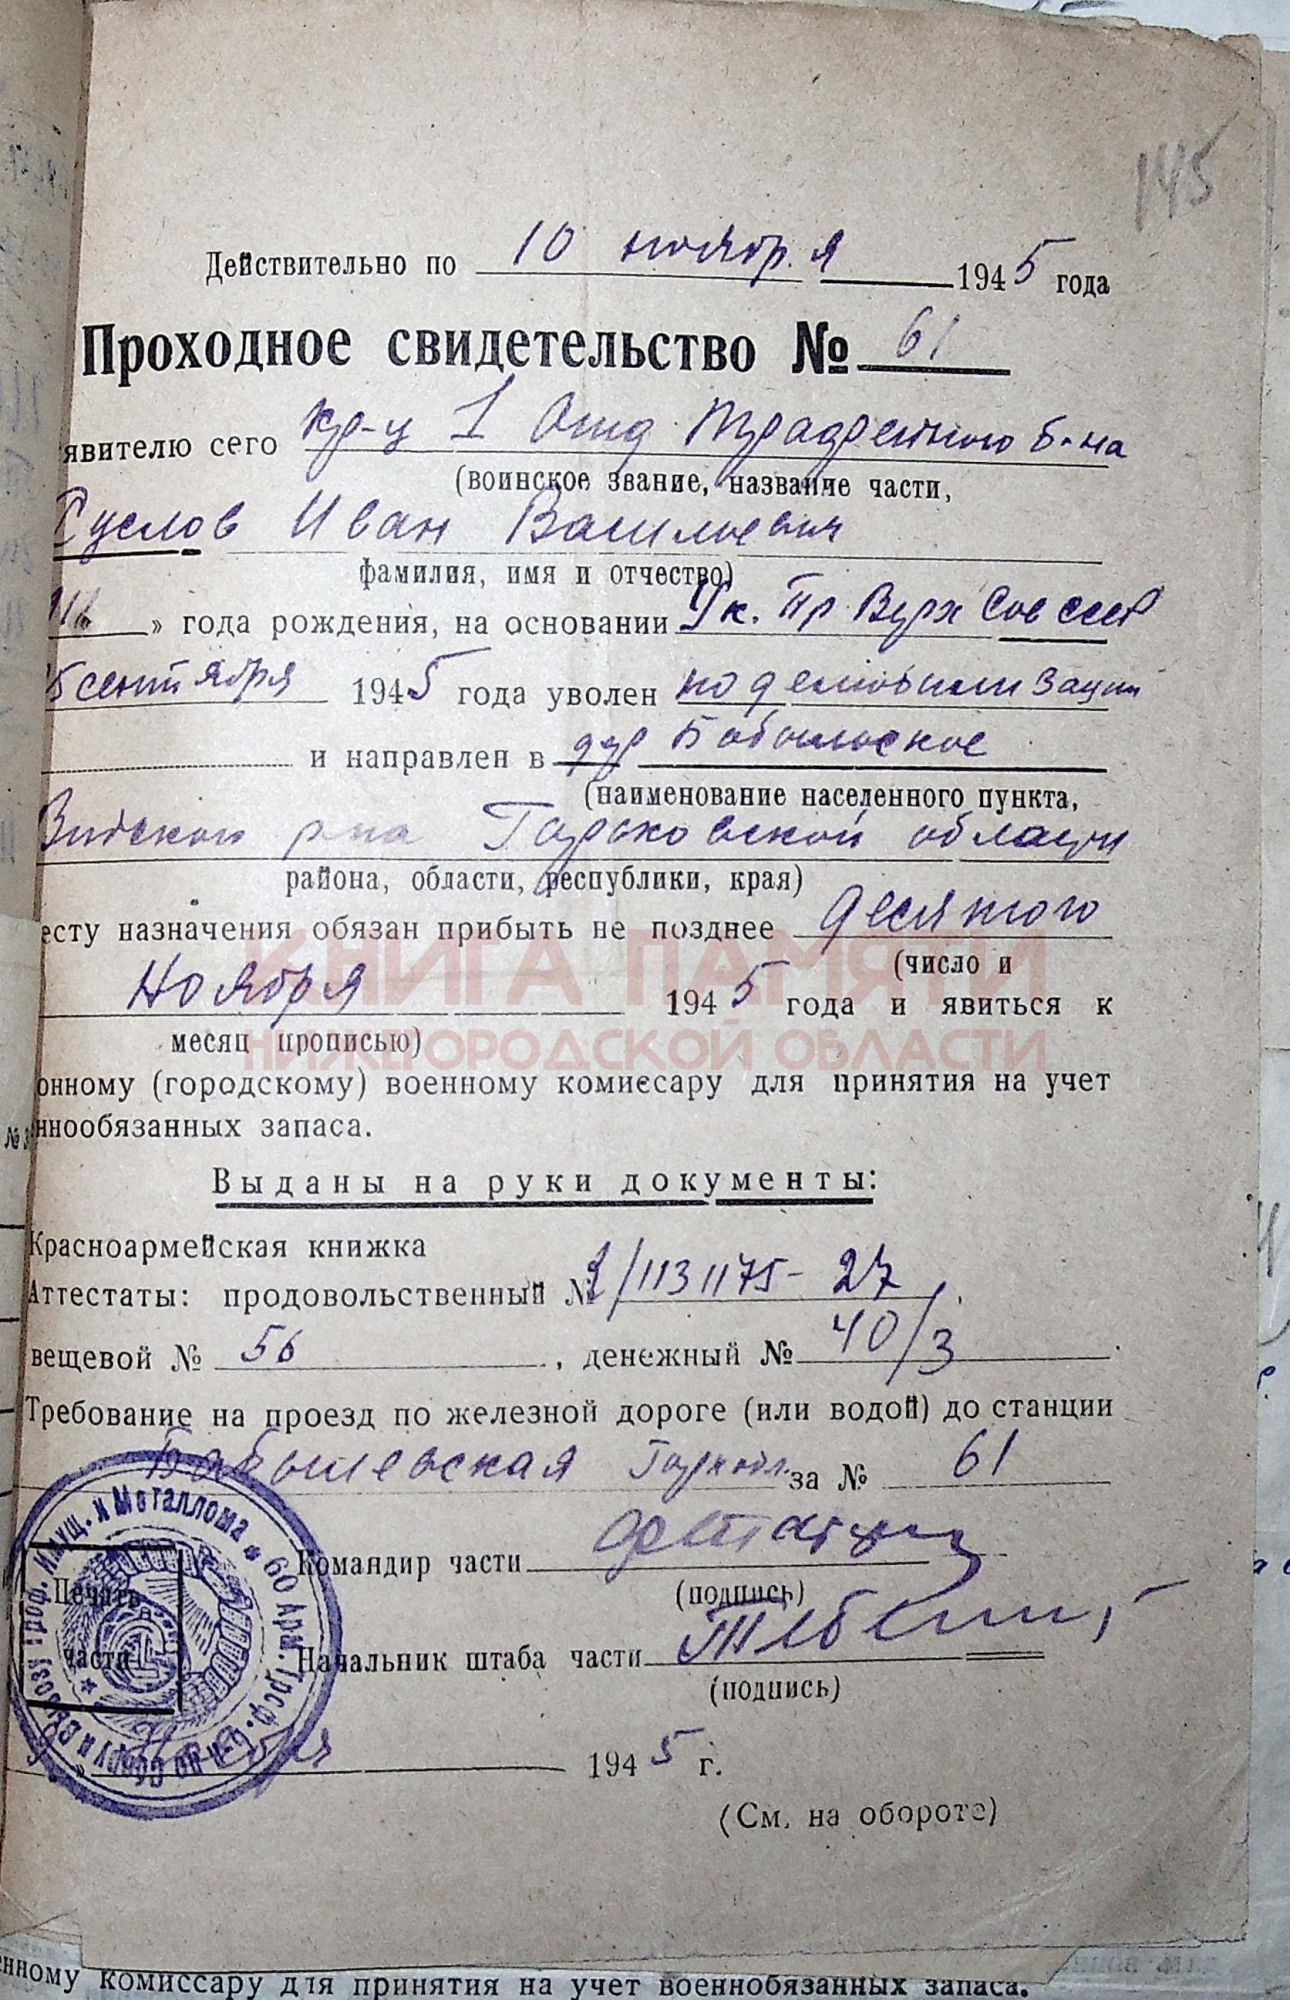 145
Действительно по 10 ноября 1945 года
Проходное свидетельство № 61
явителю сего кр-ц 1 Отд Трофейного б-на
(воинское звание, название части,
Суслов Иван Васильевич
фамилия, имя и отчество)
» года рождения, на основании Ук. Пр Верх Сов СССР
сентября 1945 года уволен по демобилизации
и направлен в
(наименование населенного пункта,
р-на Горьковской области
района, области, республики, края)
есту назначения обязан прибыть не позднее десятого
(число и
Ноября 1945 года и явиться к
месяц прописью)
онному (городскому) военному комиссару для принятия на учет
ннообязанных запаса.
Выданы на руки документы:
Красноармейская книжка
Аттестаты: продовольственный № 1/1131175-27
вещевой № 56, денежный № 40/3
Требование на проезд по железной дороге (или водой) до станции
за № 61
Командир части
(подпись)
Начальник штаба части
(подпись)
Печать
части
1945 г.
(См. на обороте)
нному комиссару для принятия на учет военнообязанных запаса.
КНИГА ПАМЯТИ
НИЖЕГОРОДСКОЙ ОБЛАСТИ